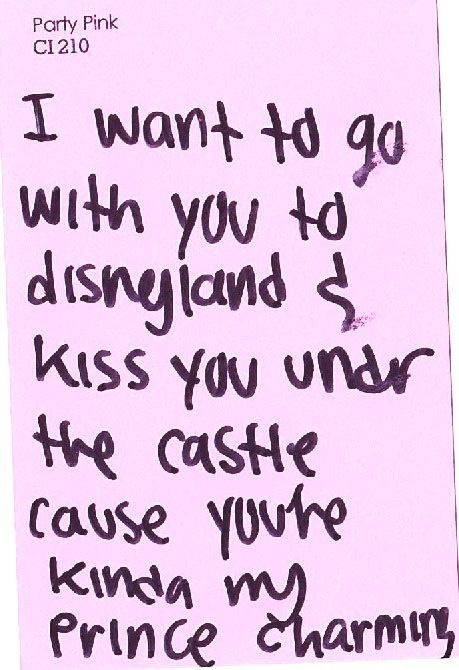 Party Pink
CI 210
I want to go
with you to
disneyland &
kiss you undr
the castle
cause you're
kinda my
prince charming